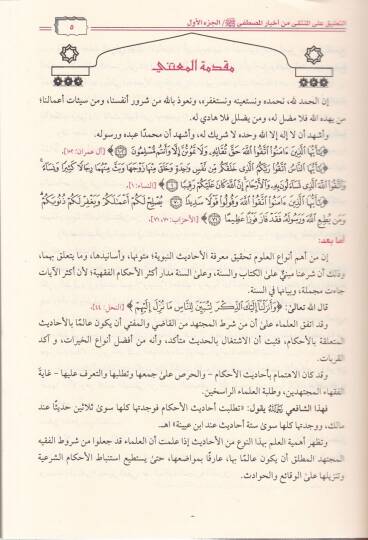 التعليق على المنتقى من أخبار المصطفى ﷺ / الجزء الأول
٥
مقدمة المعتني
إن الحمد لله، نحمده ونستعينه ونستغفره، ونعوذ بالله من شرور أنفسنا، ومن سيئات أعمالنا؛
من يهده الله فلا مضل له، ومن يضلل فلا هادي له.
وأشهد أن لا إله إلا الله وحده لا شريك له، وأشهد أن محمدًا عبده ورسوله.
﴿يَٰٓأَيُّهَا ٱلَّذِينَ ءَامَنُوا۟ ٱتَّقُوا۟ ٱللَّهَ حَقَّ تُقَاتِهِۦ وَلَا تَمُوتُنَّ إِلَّا وَأَنتُم مُّسْلِمُونَ ﴿١٠٢﴾﴾ [آل عمران: ١٠٢].
﴿يَٰٓأَيُّهَا ٱلنَّاسُ ٱتَّقُوا۟ رَبَّكُمُ ٱلَّذِى خَلَقَكُم مِّن نَّفْسٍ وَٰحِدَةٍ وَخَلَقَ مِنْهَا زَوْجَهَا وَبَثَّ مِنْهُمَا رِجَالًا كَثِيرًا وَنِسَآءً ۚ
وَٱتَّقُوا۟ ٱللَّهَ ٱلَّذِى تَسَآءَلُونَ بِهِۦ وَٱلْأَرْحَامَ ۚ إِنَّ ٱللَّهَ كَانَ عَلَيْكُمْ رَقِيبًا ﴿١﴾﴾ [النساء: ١].
﴿يَٰٓأَيُّهَا ٱلَّذِينَ ءَامَنُوا۟ ٱتَّقُوا۟ ٱللَّهَ وَقُولُوا۟ قَوْلًا سَدِيدًا ﴿٧٠﴾ يُصْلِحْ لَكُمْ أَعْمَٰلَكُمْ وَيَغْفِرْ لَكُمْ ذُنُوبَكُمْ ۗ
وَمَن يُطِعِ ٱللَّهَ وَرَسُولَهُۥ فَقَدْ فَازَ فَوْزًا عَظِيمًا ﴿٧١﴾﴾ [الأحزاب: ٧٠، ٧١].
أما بعد:
إن من أهم أنواع العلوم تحقيق معرفة الأحاديث النبوية؛ متونها، وأسانيدها، وما يتعلق بهما،
وذلك أن شرعنا مبنيٌّ على الكتاب والسنة، وعلى السنة مدار أكثر الأحكام الفقهية؛ لأن أكثر الآيات
جاءت مجملة، وبيانها في السنة.
قال الله تعالى: ﴿وَأَنزَلْنَآ إِلَيْكَ ٱلذِّكْرَ لِتُبَيِّنَ لِلنَّاسِ مَا نُزِّلَ إِلَيْهِمْ﴾ [النحل: ٤٤].
وقد اتفق العلماء على أن من شرط المجتهد من القاضي والمفتي أن يكون عالمًا بالأحاديث
المتعلقة بالأحكام، فثبت أن الاشتغال بالحديث متأكد، وأنه من أفضل أنواع الخيرات، و آكد
القربات.
وقد كان الاهتمام بأحاديث الأحكام - والحرص على جمعها وتطلبها والتعرف عليها - غايةَ
الفقهاء المجتهدين، وطلبة العلماء الراسخين.
فهذا الشافعي يقول: «تطلبت أحاديث الأحكام فوجدتها كلها سوى ثلاثين حديثًا عند
مالك، ووجدتها كلها سوى ستة أحاديث عند ابن عيينة» اهـ.
وتظهر أهمية العلم بهذا النوع من الأحاديث إذا علمت أن العلماء قد جعلوا من شروط الفقيه
المجتهد المطلق أن يكون عالمًا بها، عارفًا بمواضعها، حتى يستطيع استنباط الأحكام الشرعية
وتنزيلها على الوقائع والحوادث.